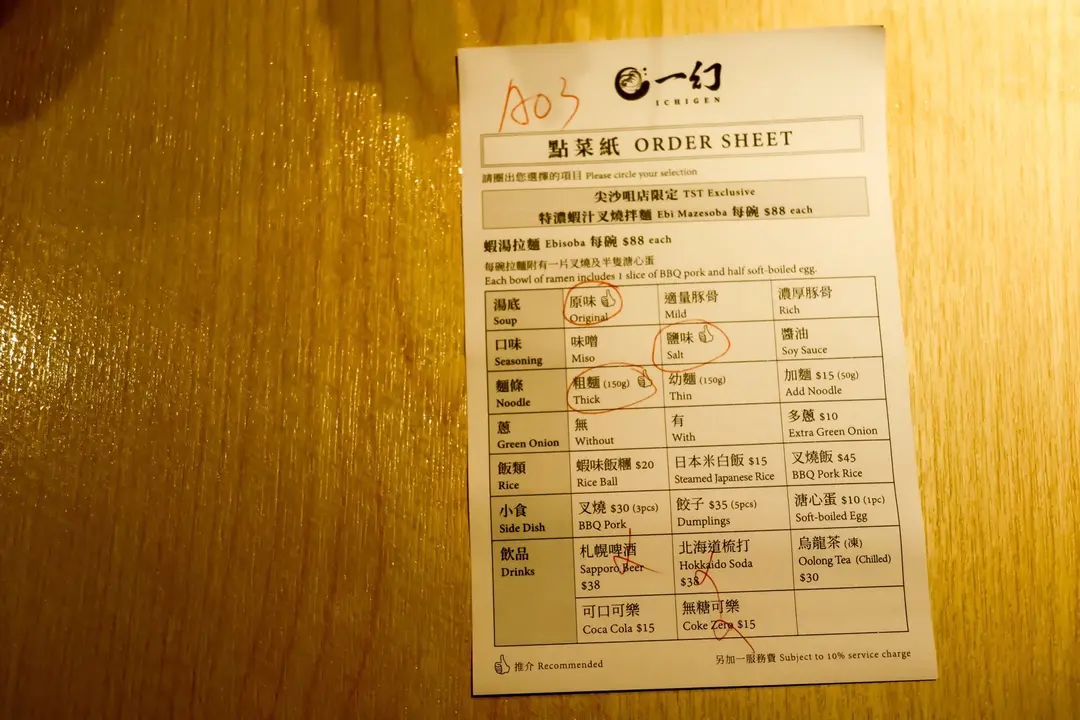 A03
一幻
ICHIGEN
點菜紙 ORDER SHEET
請圈出您選擇的項目 Please circle your selection
尖沙咀店限定 TST Exclusive
特濃蝦汁叉燒拌麵 Ebi Mazesoba 每碗 $88 each
蝦湯拉麵 Ebisoba 每碗 $88 each
每碗拉麵附有一片叉燒及半隻溏心蛋
Each bowl of ramen includes 1 slice of BBQ pork and half soft-boiled egg.
湯底 原味 適量豚骨 濃厚豚骨
Soup Original Mild Rich
口味 味噌 鹽味 醬油
Seasoning Miso Salt Soy Sauce
麵條 粗麵 (150g) 幼麵 (150g) 加麵 $15 (50g)
Noodle Thick Thin Add Noodle
蔥 無 有 多蔥 $10
Green Onion Without With Extra Green Onion
飯類 蝦味飯糰 $20 日本米白飯 $15 叉燒飯 $45
Rice Rice Ball Steamed Japanese Rice BBQ Pork Rice
小食 叉燒 $30 (3pcs) 餃子 $35 (5pcs) 溏心蛋 $10 (1pc)
Side Dish BBQ Pork Dumplings Soft-boiled Egg
飲品 札幌啤酒 北海道梳打 烏龍茶 (凍)
Drinks Sapporo Beer Hokkaido Soda Oolong Tea (Chilled)
$38 $38 $30
可口可樂 無糖可樂
Coca Cola $15 Coke Zero $15
推介 Recommended 另加一服務費 Subject to 10% service charge